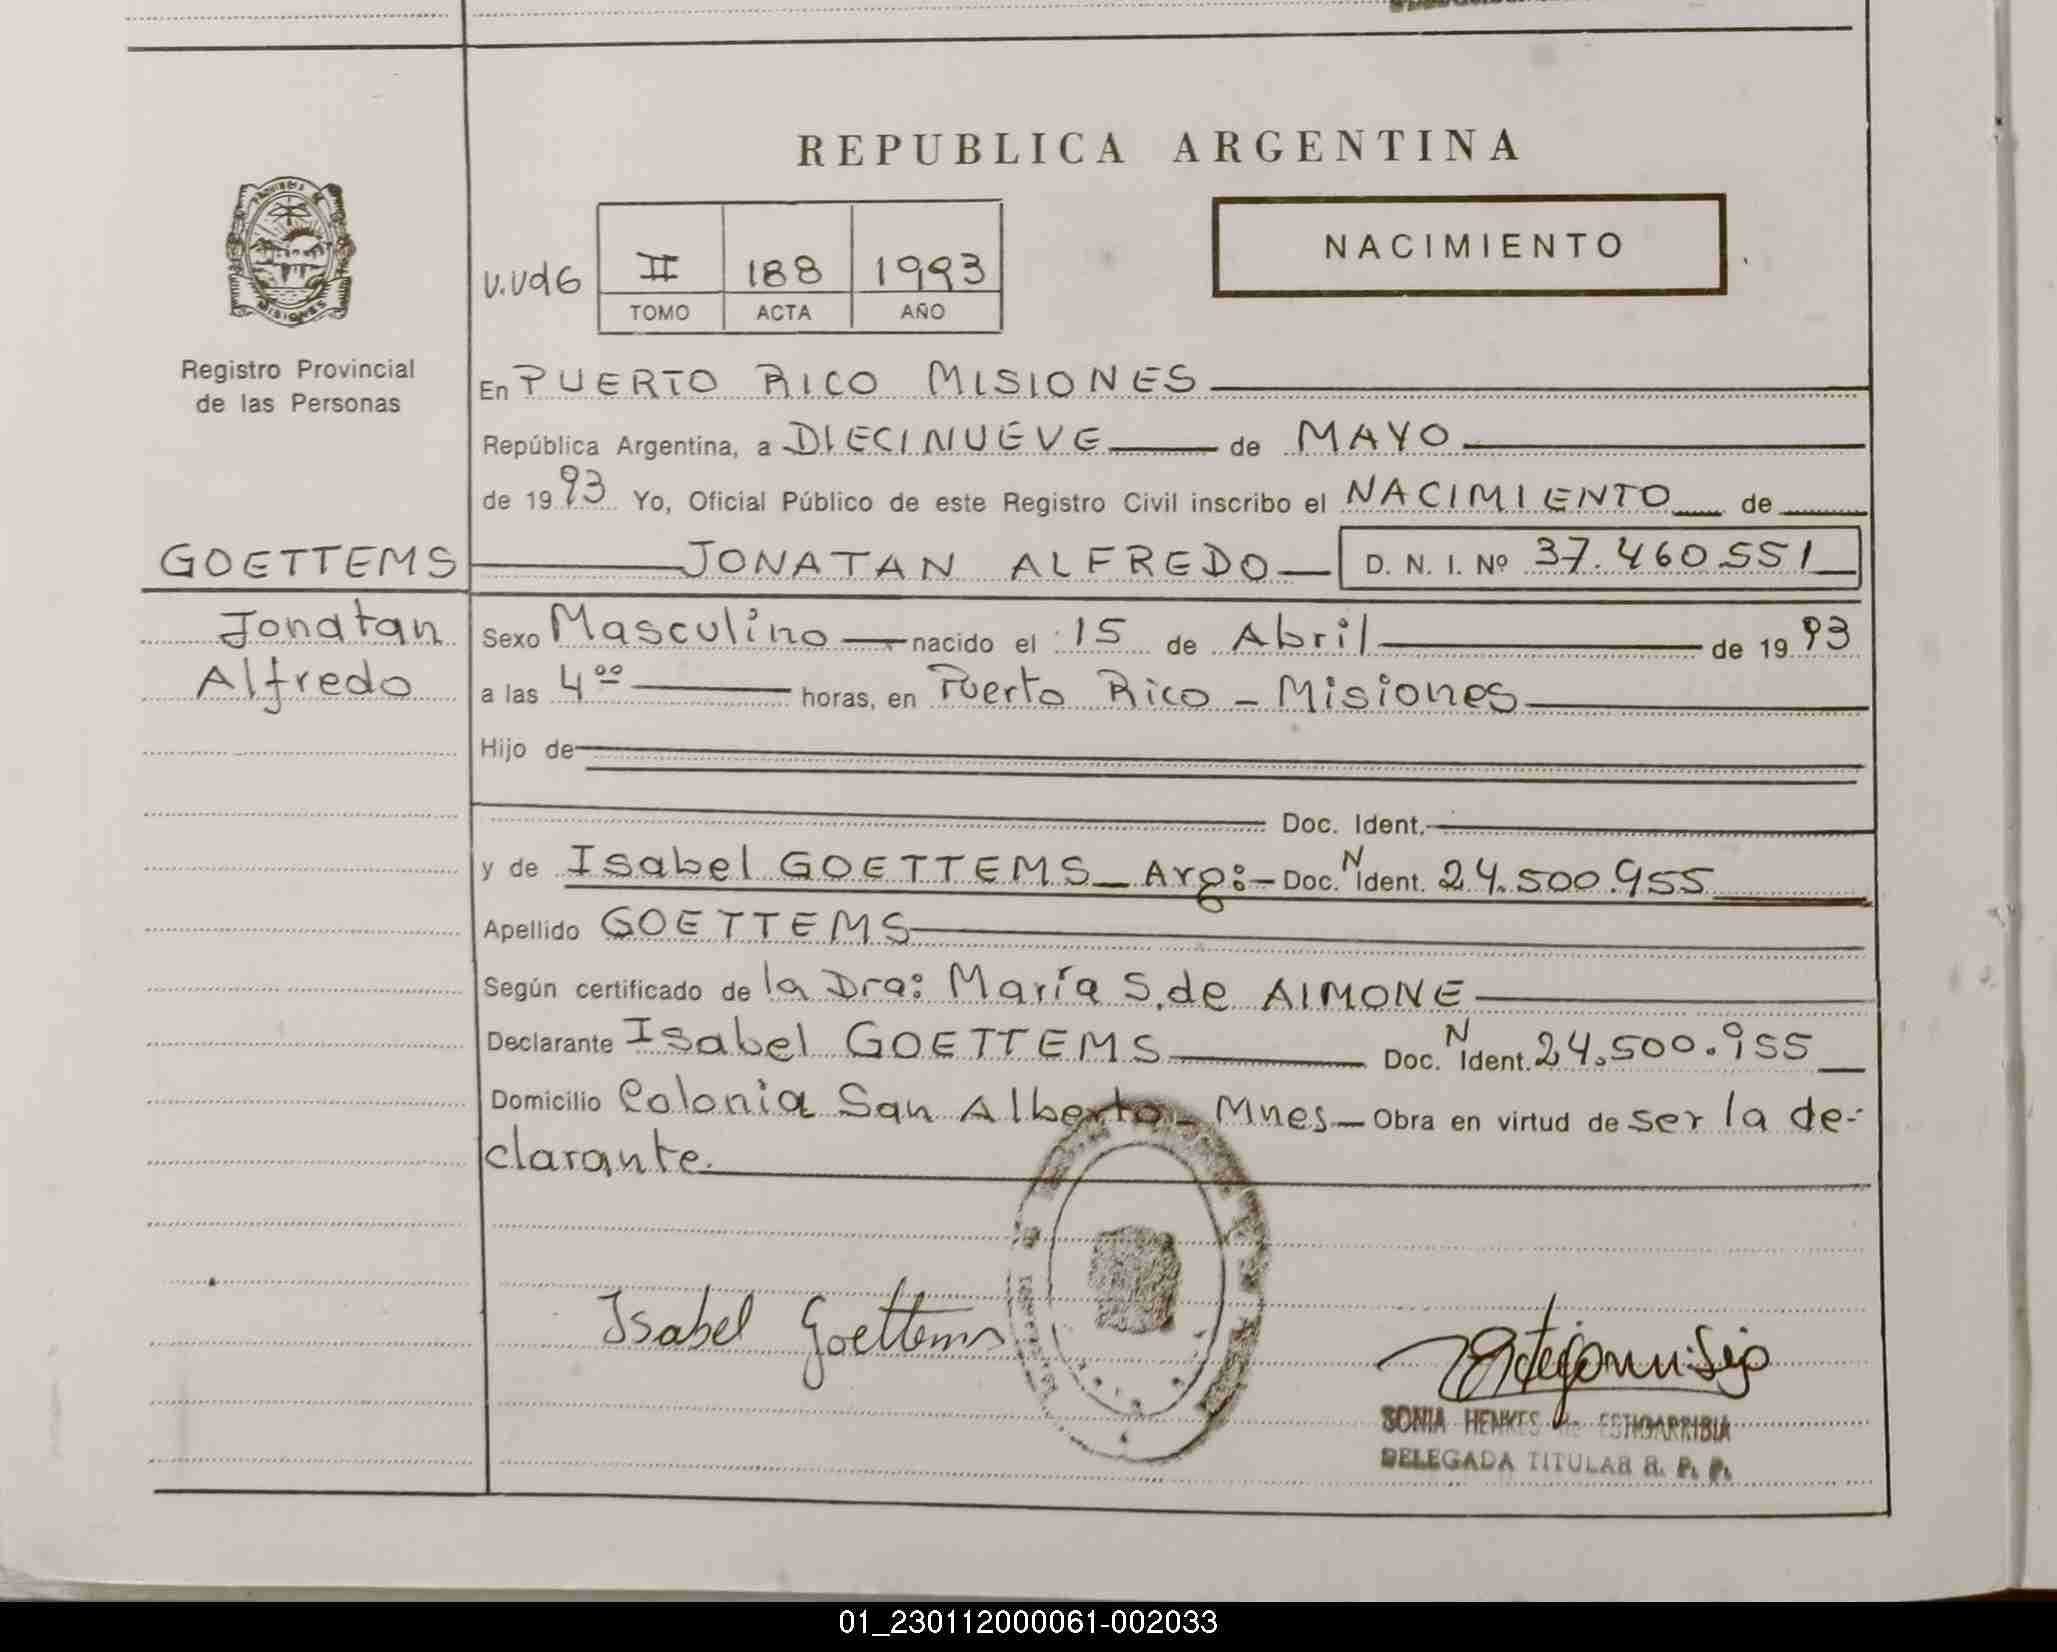 REPUBLICA ARGENTINA
PROVINCIA DE
MISIONES
Registro Provincial
de las Personas
II 188 1993
TOMO ACTA AÑO
NACIMIENTO
En PUERTO RICO MISIONES
República Argentina, a DIECINUEVE de MAYO
de 1993 Yo, Oficial Público de este Registro Civil inscribo el NACIMIENTO de
GOETTEMS JONATAN ALFREDO D. N. I. Nº 37.460.551
Jonatan
Alfredo
Sexo Masculino nacido el 15 de Abril de 1993
a las 4 ºº horas, en Puerto Rico - Misiones
Hijo de
Doc. Ident.
y de Isabel GOETTEMS - Arg:- Doc. N Ident. 24.500.955
Apellido GOETTEMS
Según certificado de la Dra: María S. de AIMONE
Declarante Isabel GOETTEMS Doc. N Ident. 24.500.955
Domicilio Colonia San Alberto - Mnes - Obra en virtud de ser la de-
clarante.
Isabel Goettems
SONIA HENKES de ESTIGARRIBIA
DELEGADA TITULAR R. P. P.
01_230112000061-002033